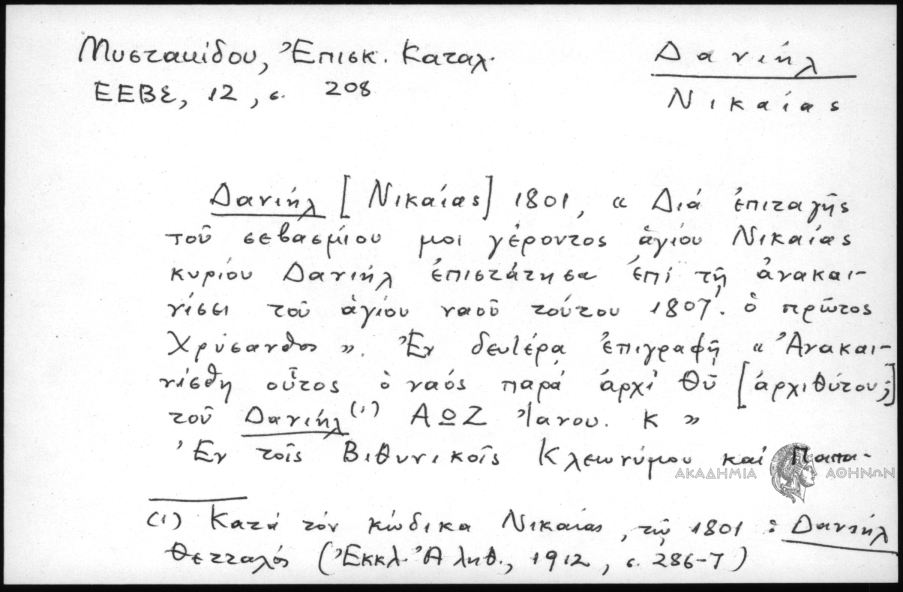 Μυστακίδου, Ἐπισκ. Καταλ.
ΕΕΒΣ, 12, σ. 208
Δανιήλ
Νικαίας
Δανιήλ [Νικαίας] 1801, « Διά ἐπιταγῆς
τοῦ σεβασμίου μοι γέροντος ἁγίου Νικαίας
κυρίου Δανιήλ ἐπιστάτησα ἐπί τῇ ἀνακαι-
νίσει τοῦ ἁγίου ναοῦ τούτου 1807. ὁ πρῶτος
Χρύσανθος ». Ἐν δευτέρᾳ ἐπιγραφῇ « Ἀνακαι-
νίσθη οὗτος ὁ ναός παρά ἀρχι θῦ [ἀρχιθύτου;]
τοῦ Δανιήλ (1) ΑΩΖ Ἰανου. Κ »
Ἐν τοῖς Βιθυνικοῖς Κλεωνύμου καί Παπα-
ΑΚΑΔΗΜΙΑ ΑΘΗΝΩΝ
(1) Κατά τόν κώδικα Νικαίας, τῷ 1801 : Δανιήλ
Θετταλός (Ἐκκλ. Ἀληθ., 1912, σ. 286-7)